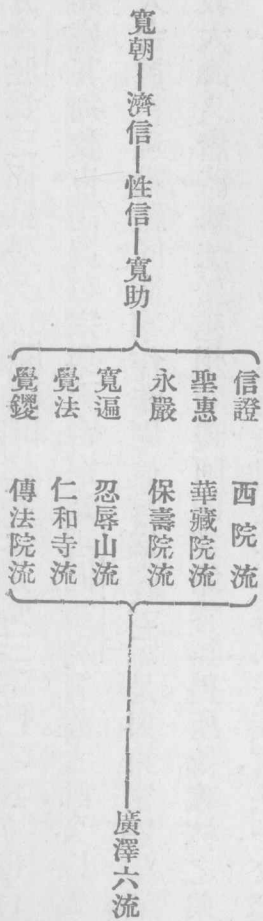 寬朝—濟信—性信—寬助—
信證 西院流
聖惠 華藏院流
永嚴 保壽院流
寬遍 忍辱山流
覺法 仁和寺流
覺鑁 傳法院流
廣澤六流